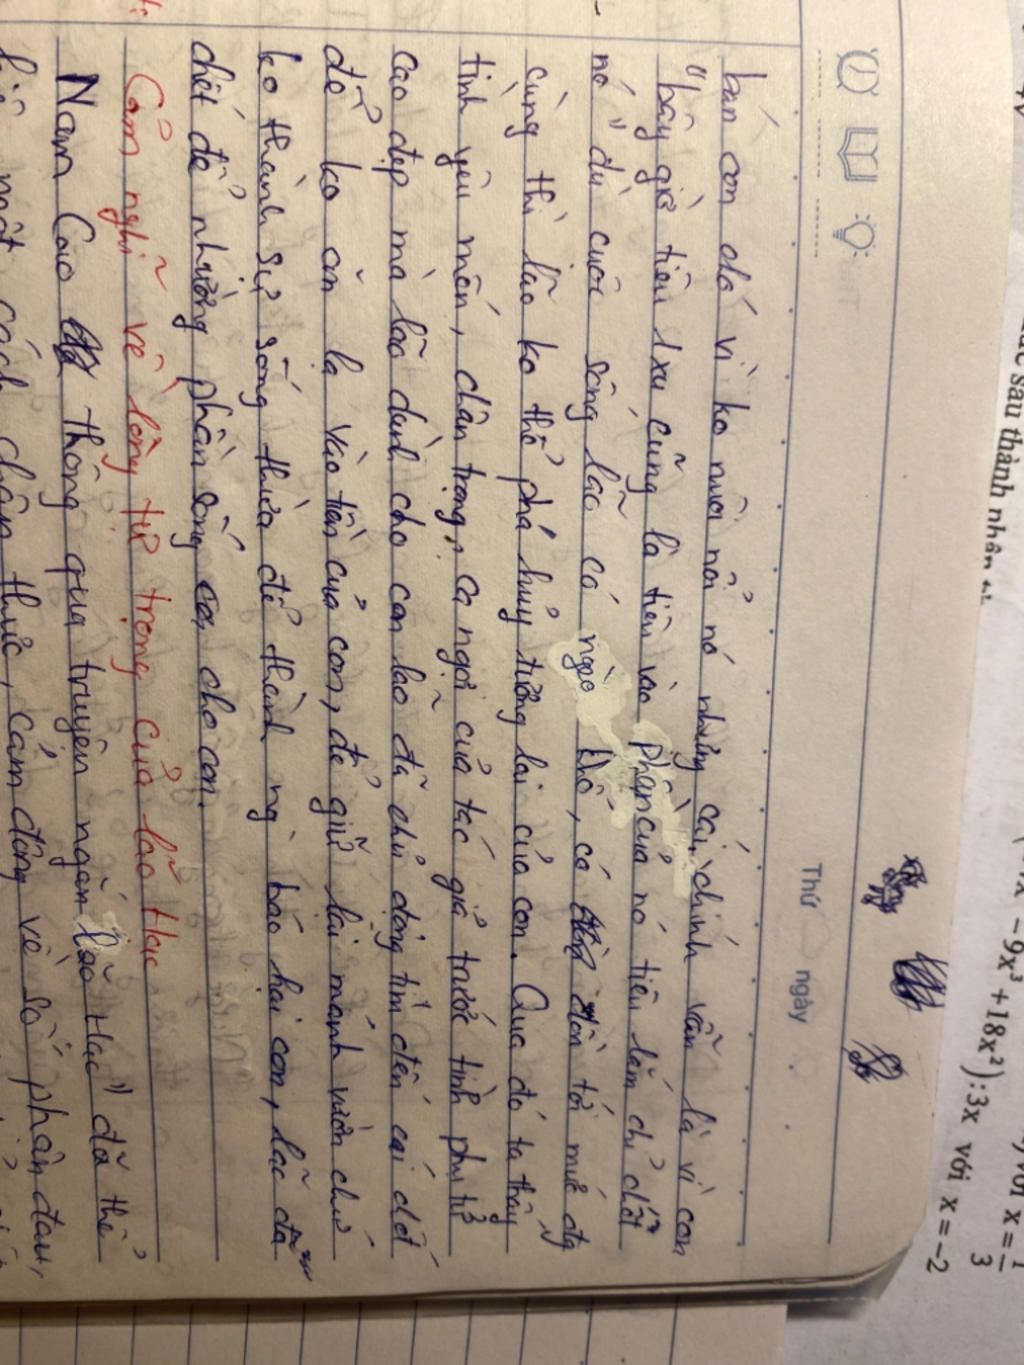 Thứ ngày
bán con chó vì ko nuôi nổi nó nhưng cái chính vẫn là vì con
"bây giờ tiêu 1 xu cũng là tiêu vào phần của nó tiêu lắm chỉ chết
nó" dù cuộc sống lão có nghèo khổ, có dồn tới mức đg
cùng thì lão ko thể phá hủy tương lai của con. Qua đó ta thấy
tình yêu mến, chân trọng, ca ngợi của tác giả trước tình phụ tử
cao đẹp mà lão dành cho con lão đã chủ động tìm đến cái chết
để ko ăn lạ vào tiền của con, để giữ lại mảnh vườn chứ
ko thành sự sống thừa để thành ng báo hại con, lão đã
chết để nhường phần sống cho con.
Cảm nghĩ về lòng tự trọng của lão Hạc
Nam Cao thông qua truyện ngắn "lão Hạc" đã thể
hiện một cách chân thực, cảm động về số phận đau,
sau thành nhân
− 9x³ + 18x²) : 3x với x = −2
với x = 1/3